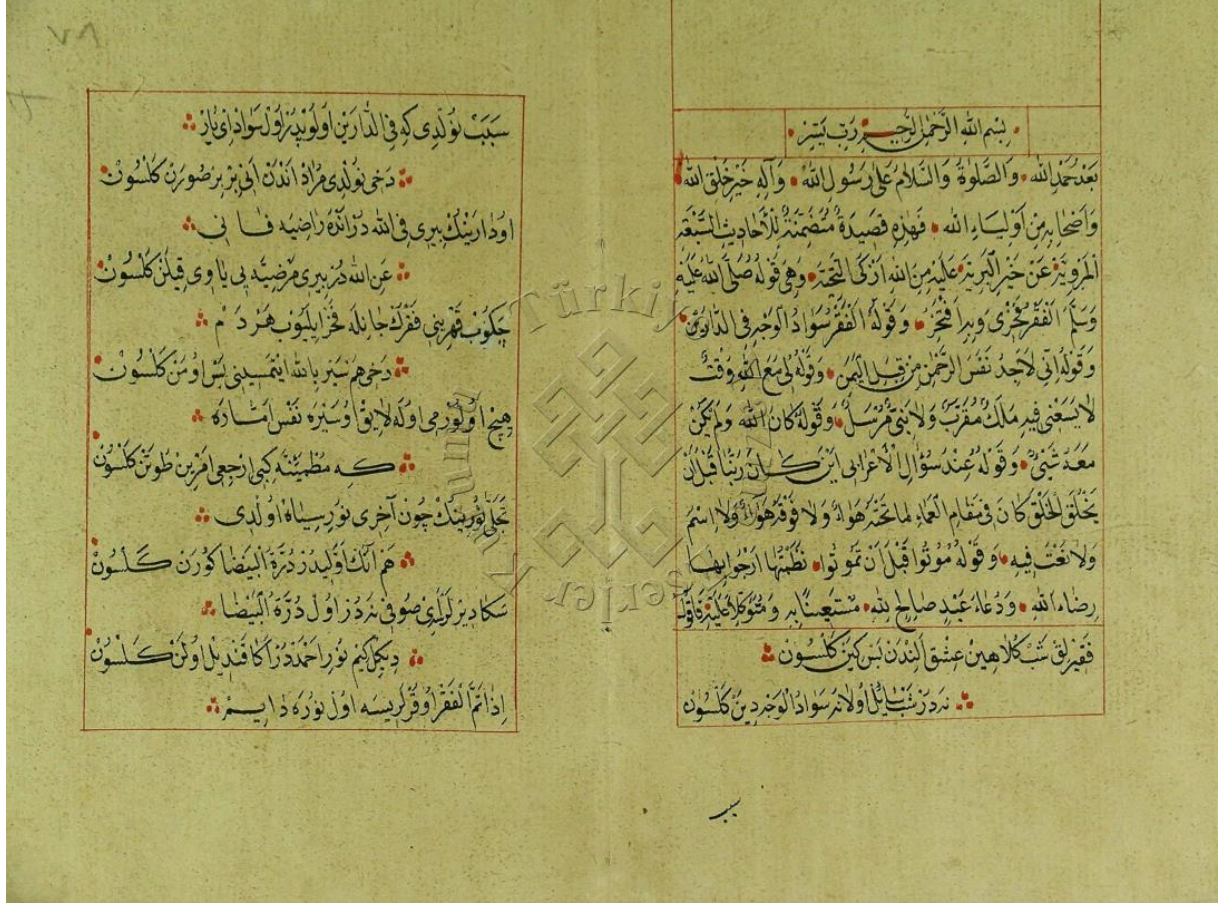 بسم الله الرحمن الرحيم رب يسر
بعد حمد الله والصلوة والسلام على رسول الله وآله خير خلق الله
واصحابه من اولياء الله فهذه قصيدة متضمنة للأحاديث السبعة
المروية عن خير البرية عليه من الله ازكى التحية وهي قوله صلى الله عليه
وسلم الفقر فخرى وبه افتخر وقوله الفقر سواد الوجه فى الدارين
وقوله انى لاجد نفس الرحمن من قبل اليمن وقوله لى مع الله وقت
لا يسعنى فيه ملك مقرب ولا نبى مرسل وقوله كان الله ولم يكن
معه شئ وقوله عند سؤال الاعرابى اين كان ربنا قبل أن
يخلق الخلق كان فى مقام العماء لما تحته هواء ولا فوقه هواء ولا اسم
ولا نعت فيه وقوله موتوا قبل أن تموتوا نظمتها ارجو بها
رضاء الله ودعاء عبد صالح لله مستعينا به ومتوكلا عليه فاقول
فقيرلق شب كلاهين عشق الندن بس كين كلسون
ندر زنب اولا ندر سواد الوجه دين كلسون
سبب
٧٨
سبب بولدى كه فى الدارين اولوبدر اول سواد اى يار
دخى بولدى مراد اندن انى بر بر صورن كلسون
او دارينك بيرى فى الله در انده راضيه فانى
عن الله در بيرى مرضيه بى ياوى قيلن كلسون
چكوب قهرينى فقرك جانله فخر ايليوب هر دم
دخى هم سير بالله ايتمسينى بس اومن كلسون
هيچ اولورمى اوله لايق او سيره نفس اماره
كه مطمئنه كبى ارجعى امرين طوتن كلسون
تجلى نورينك چون آخرى نور سياه اولدى
هم انك اوليدر درة البيضا كورن كلسون
سكا ديرلر اى صوفى ندر اول درة البيضا
ديكل كيم نور احمددر اكا قنديل اولن كلسون
اذا تم الفقر اوقرلريسه اول نوره دايم